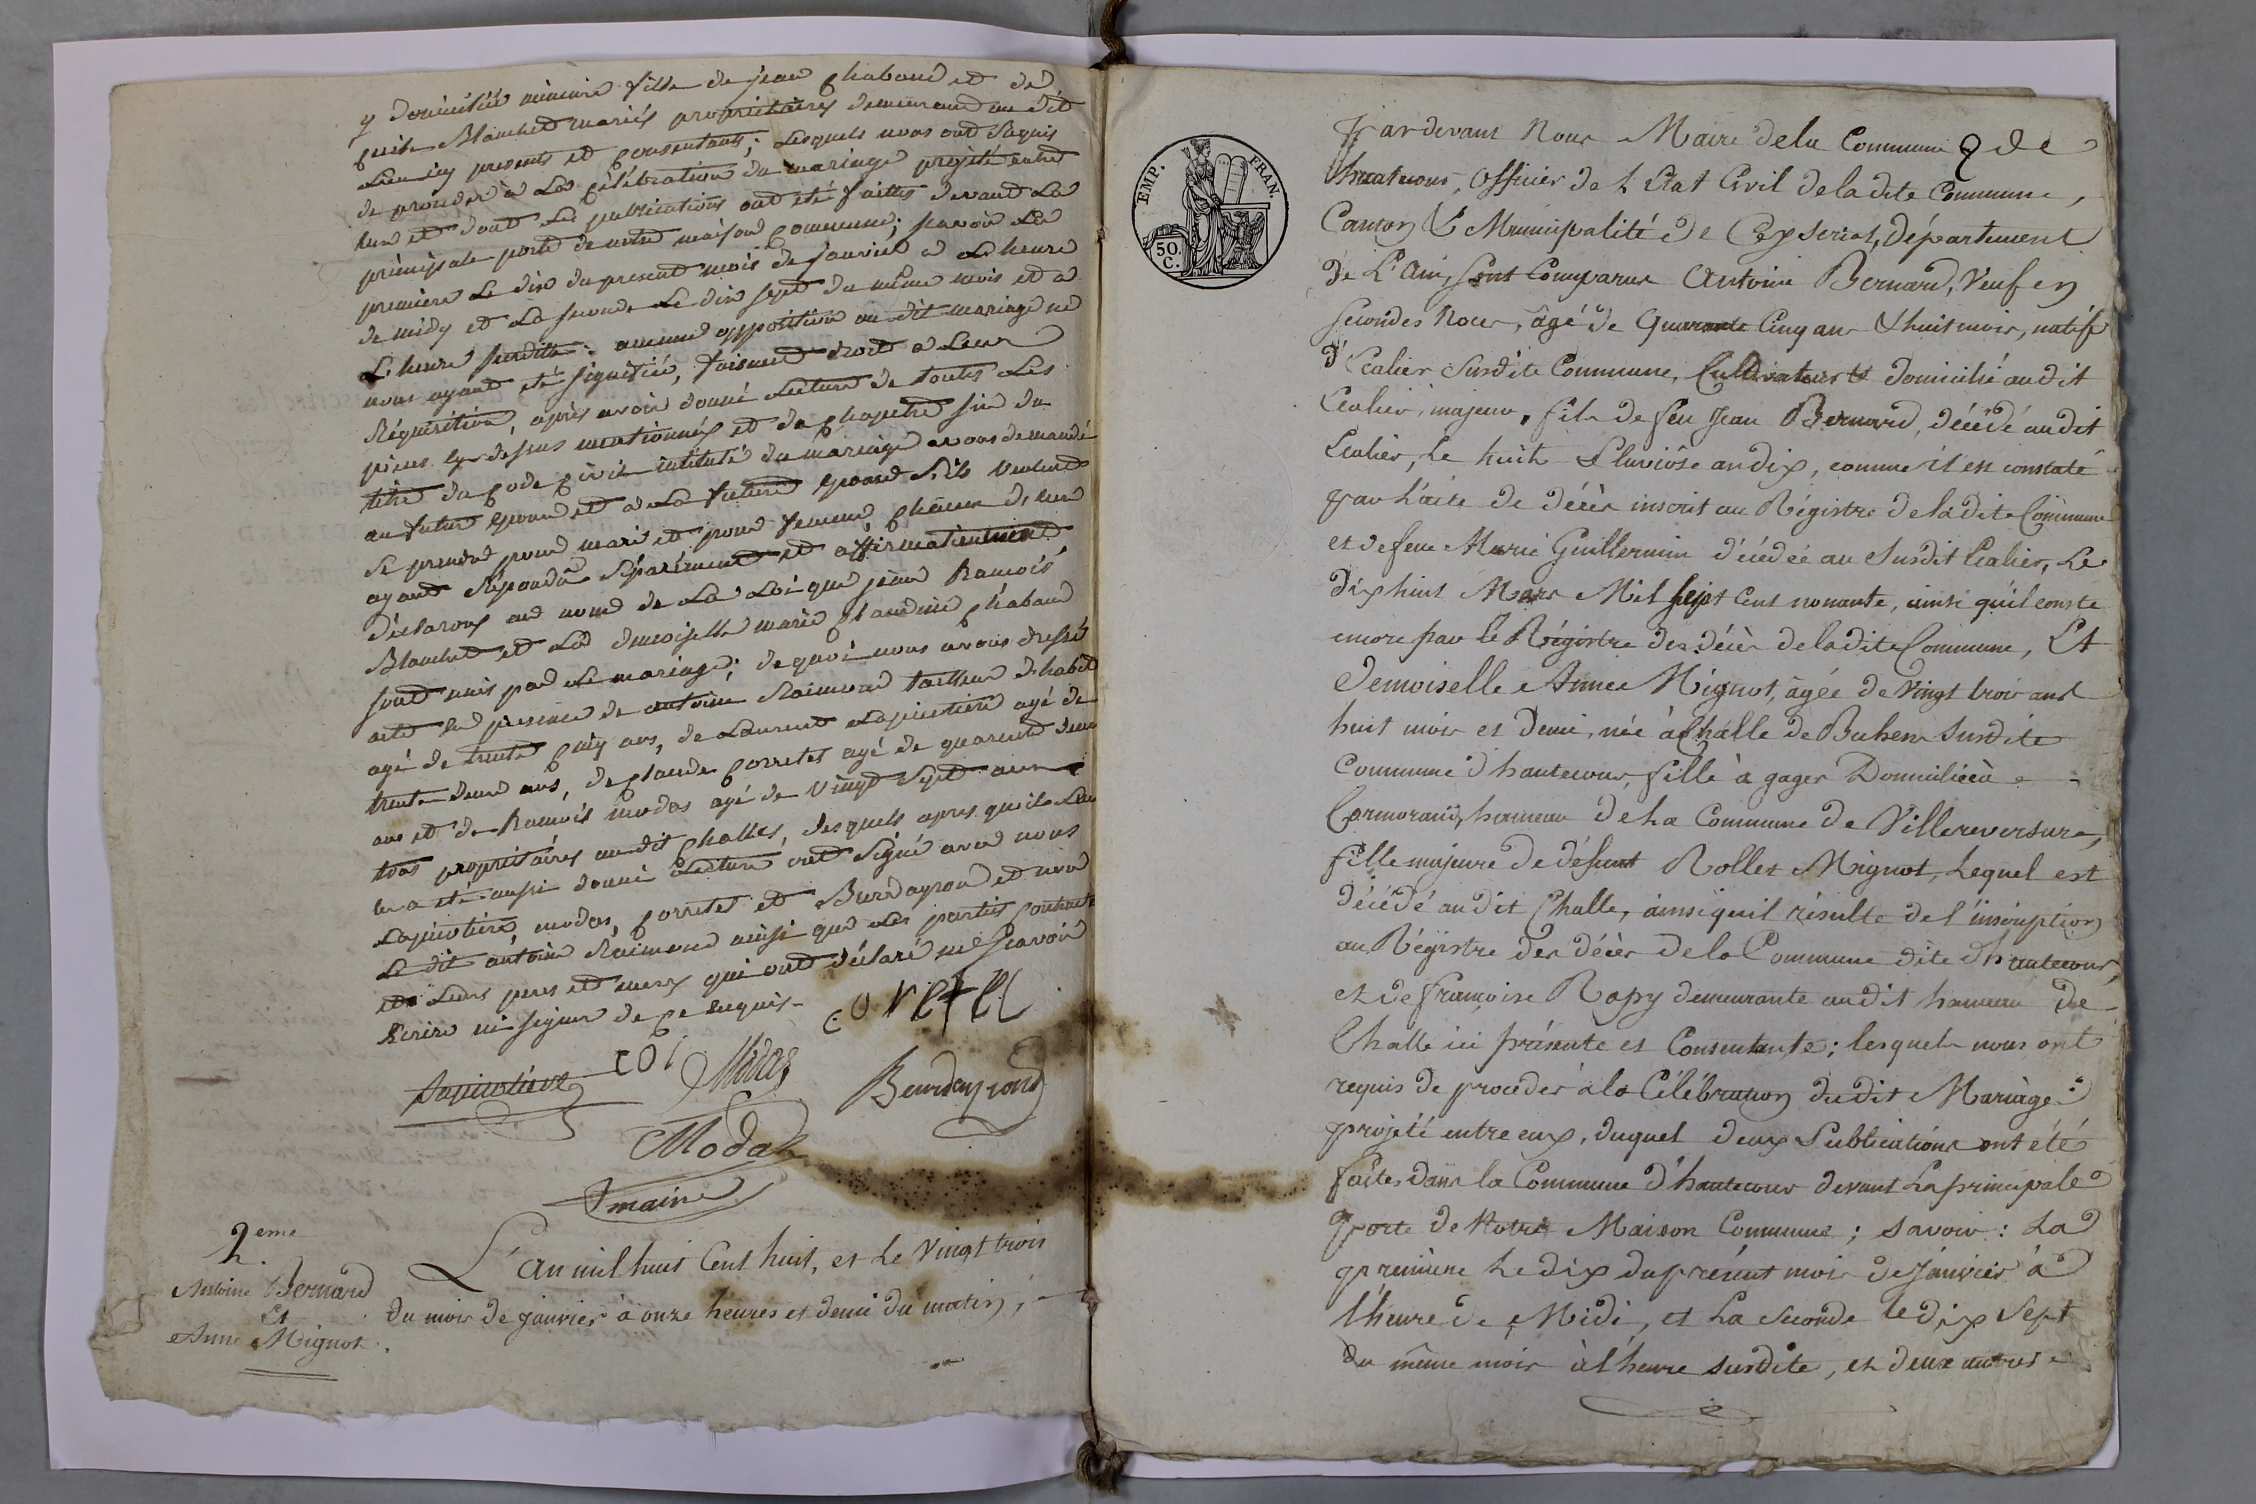 y domiciliée mineure fille de jean Chaband et de
Blanchet mariés proprietaires demeurand au dit
Lieu icy presents et Consentants; Lesquels nous ont Requis
de proceder à La Célébration du mariage projeté entre
Eux et dont Les publications ont été faittes devand La
principale porte de notre maison Commune; scavoir La
premiere Le dix du present mois de janvier à L'heure
de midy et La seconde Le dix sept du même mois et à
L'heure susditte. aucune opposition au dit mariage ne
nous ayant été signifiée, faisant droit à Leur
Réquisition, après avoir donné Lecture de toutes Les
pieces cy dessus mentionnés et du Chapitre six du
titre du Code Civil intitulé du mariage avons demandé
au futur Epoux et à La future Epouse s'ils veulent
se prendre pour mari et pour femme, chacun d'eux
ayant Répondu séparément et affirmativement
déclarons au nom de La Loi que jean francois
Blanchet et La demoiselle marie Claudine Chaband
sont unis par Le mariage; de quoi nous avons dressé
acte en presence de antoine Raimond tailleur d'habit
agé de trente Cinq ans, de Laurent Lapicotiere agé de
trente deux ans, de Claude Corretel agé de quarente deux
ans et de francois modas agé de vingt sept ans
tous propriétaires au dit Challes, Lesquels apres qu'il Leur
en a été aussi donné Lecture ont signé avec nous
Lapicotiere, modas, Corretel et Burdayron et non
Le dit antoine Raimond ainsi que Les parties Contract
Leurs peres et meres qui ont déclaré ne scavoir
Ecrire ni signer de ce Requis.
coretel
Lapicotiere Modas Beurdayrond
Modas
maire
2.eme
Antoine Bernard
Et
Anne Mignot.
L'an mil huit Cent huit, et Le vingt trois
du mois de janvier à onze heures et demi du matin,
EMP. FRAN.
50 C.
Pardevant Nous Maire de la Commune de
hautecour, Officier de L'Etat Civil de la dite Commune,
Canton & Municipalité de Ceyseriat, département
de L'Ain, sont Comparus Antoine Bernard, Veuf en
secondes Noces, âgé de Quarante Cinq ans & huit mois, natif
d'Ecalier susdite Commune, Cultivateur & domicilié au dit
Ecalier, majeur, fils de feu Jean Bernard, décédé au dit
Ecalier, Le huit Pluviôse an dix, comme il est constaté
par L'acte de décès inscrit au Régistre de la dite Commune
et de feue Marie Guillermin décédée au susdit Ecalier, Le
dix huit Mars Mil sept Cent nonante, ainsi qu'il conste
encore par le Régistre des décès de la dite Commune, Et
Demoiselle Anne Mignot, âgée de vingt trois ans
huit mois et demi, née à Challe de Bohem susdite
Commune d'hautecour, fille à gages Domiciliée à
Cormorand, hameau de La Commune de Villereversure,
fille majeure de défunt Rollet Mignot, Lequel est
décédé au dit Challe, ainsi qu'il résulte de l'inscription
au Régistre des décès de la Commune dite d'hautecour,
et de françoise Ropy demeurante au dit hameau de
Challe ici présente et Consentante; lesquels nous ont
requis de procéder à la Célébration du dit Mariage
projété entre eux, duquel deux Publications ont été
faites dans la Commune d'hautecour devant La principale
porte de Notre Maison Commune; savoir: La
première Le dix du présent mois de Janvier à
l'heure de Midi, et La seconde le dix sept
du même mois à l'heure susdite, et deux autres